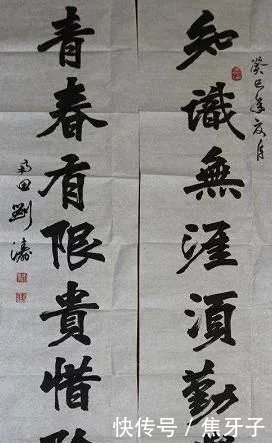 癸巳年夏月
知識無涯須勤
青春有限貴惜
田劉濤
快传号 / 焦牙子